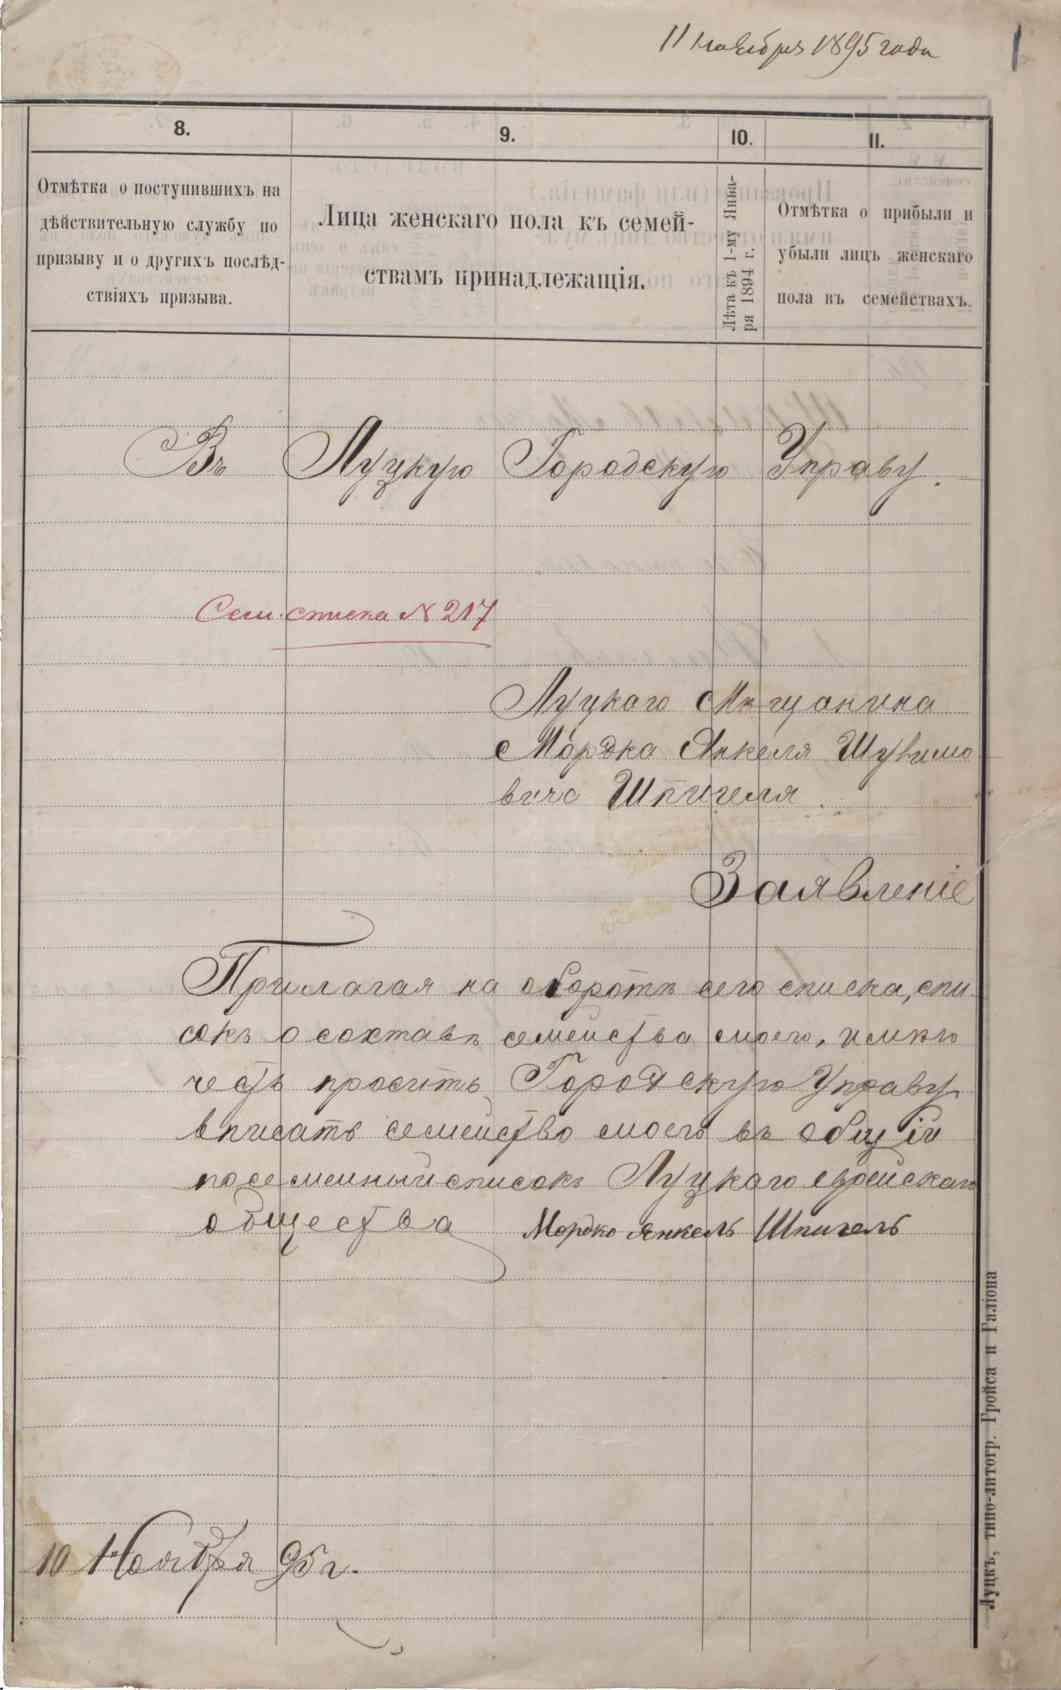 11 ноября 1895 года
1
8.
9.
10.
11.
Отмѣтка о поступившихъ на
дѣйствительную службу по
призыву и о другихъ послѣд-
ствіяхъ призыва.
Лица женскаго пола къ семей-
ствамъ принадлежащія.
Лѣта къ 1-му Янва-
ря 1894 г.
Отмѣтка о прибыли и
убыли лицъ женскаго
пола въ семействахъ.
Въ Луцкую Городскую Управу.
Сем. списка N 217
Луцкаго Мѣщанина
Мордка Янкеля Шувимо
вича Шпигеля.
Заявленіе
Прилагая на оборотѣ сего списка, спи-
сокъ о составѣ семейства моего, имѣю
честь просить Городскую Управу
вписать семейство моего въ общій
посемейный списокъ Луцкаго еврейскаго
общества Мордко Янкель Шпигель
10 Ноября 95 г.
Луцкъ, типо-литогр. Гройса и Галіона